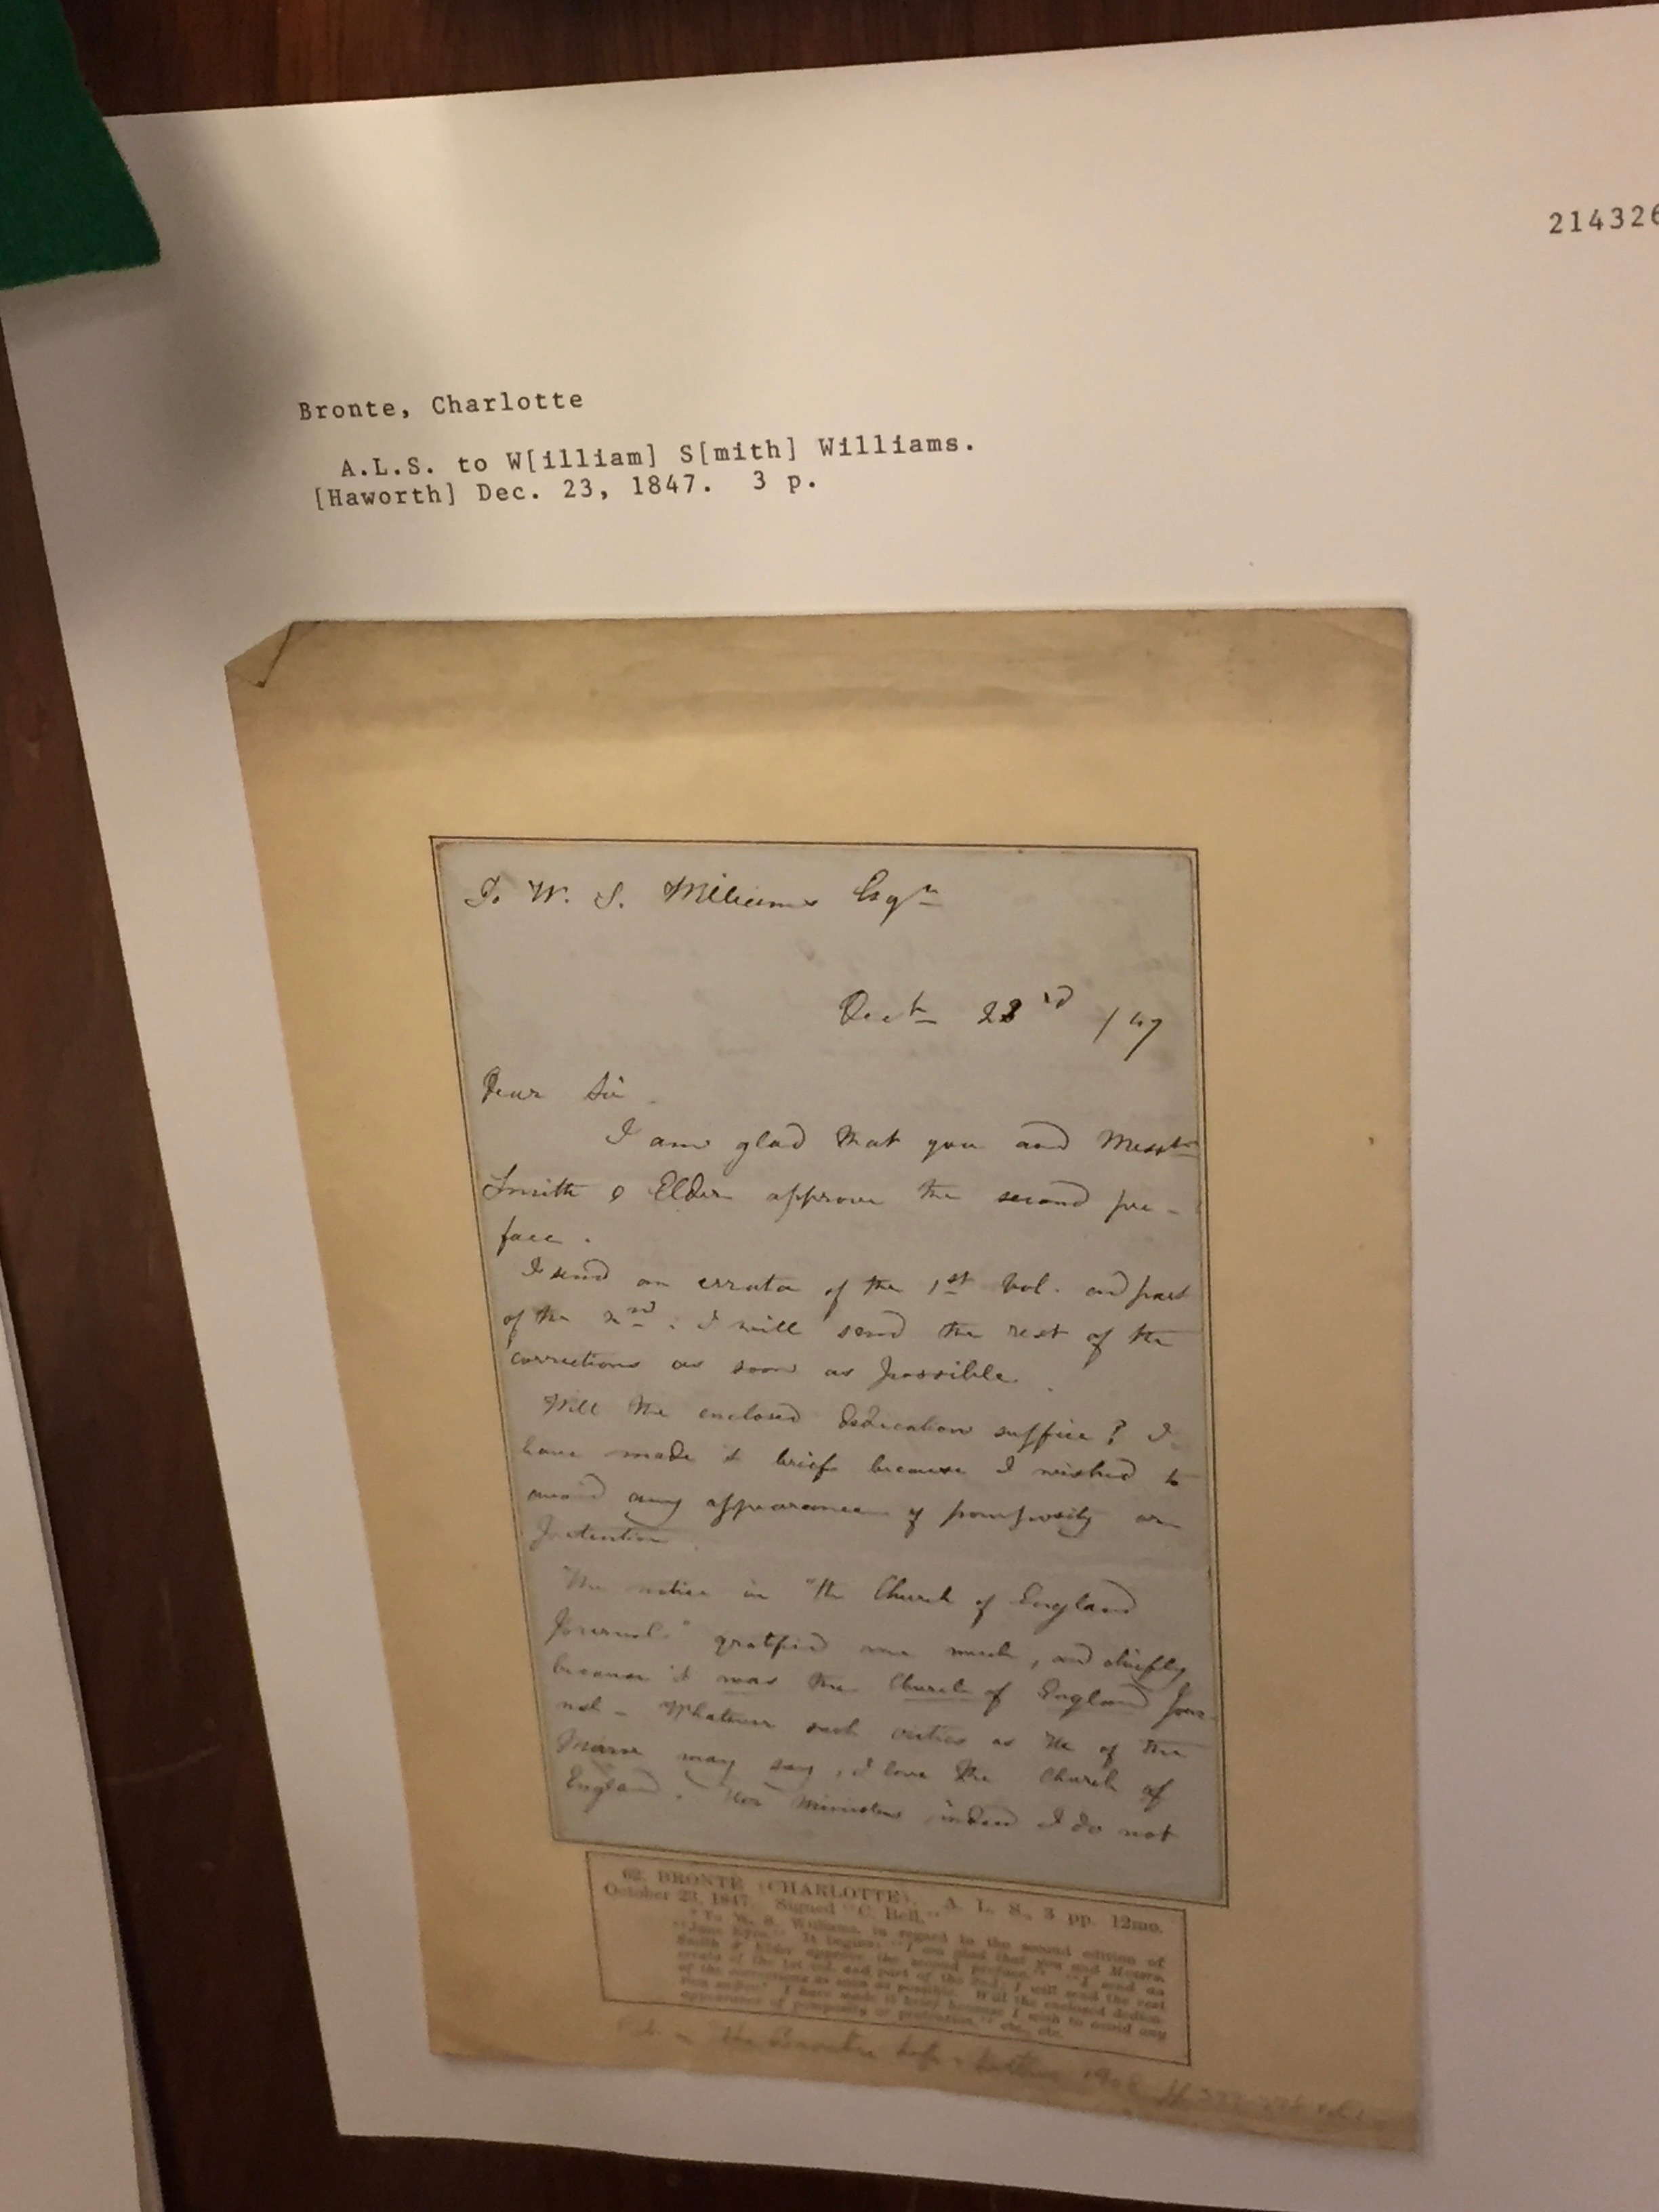 214326
Bronte, Charlotte
A.L.S. to W[illiam] S[mith] Williams.
[Haworth] Dec. 23, 1847. 3 p.
To W. S. Williams Esqr
Decbr 23rd /47
Dear Sir
I am glad that you and Messrs
Smith & Elder approve the second pre-
face.
I send an errata of the 1st Vol. and part
of the 2nd: I will send the rest of the
corrections as soon as possible.
Will the enclosed dedication suffice? I
have made it brief because I wished to
avoid any appearance of pomposity or
pretention.
The notice in "the Church of England
Journal" gratified me much, and chiefly
because it was the Church of England Jour-
nal - Whatever such critics as he of the
Mirror may say, I love the Church of
England. Her Ministers indeed I do not
62. BRONTË (CHARLOTTE). A. L. S., 3 pp. 12mo.
October 23, 1847. Signed "C. Bell."
"To W. S. Williams, in regard to the second edition of
"Jane Eyre." It begins: "I am glad that you and Messrs.
Smith & Elder approve the second preface." "I send an
errata of the 1st vol. and part of the 2nd; I will send the rest
of the corrections as soon as possible. Will the enclosed dedica-
tion suffice? I have made it brief because I wish to avoid any
appearance of pomposity or pretention," etc., etc.
The Brontës Life & Letters 1908